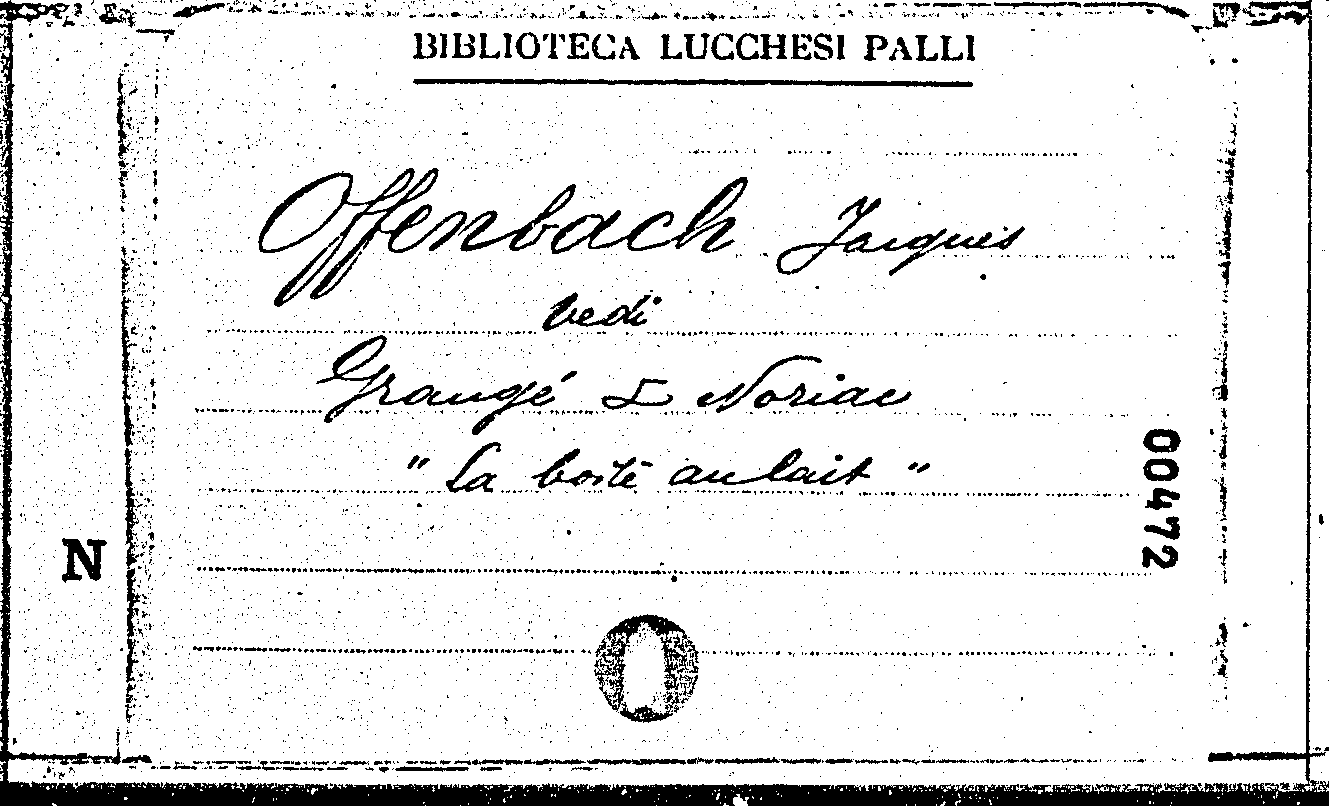 BIBLIOTECA LUCCHESI PALLI
Offenbach Jacques
vedi
Grangé & Noriac
" La boîte au lait "
N
00472